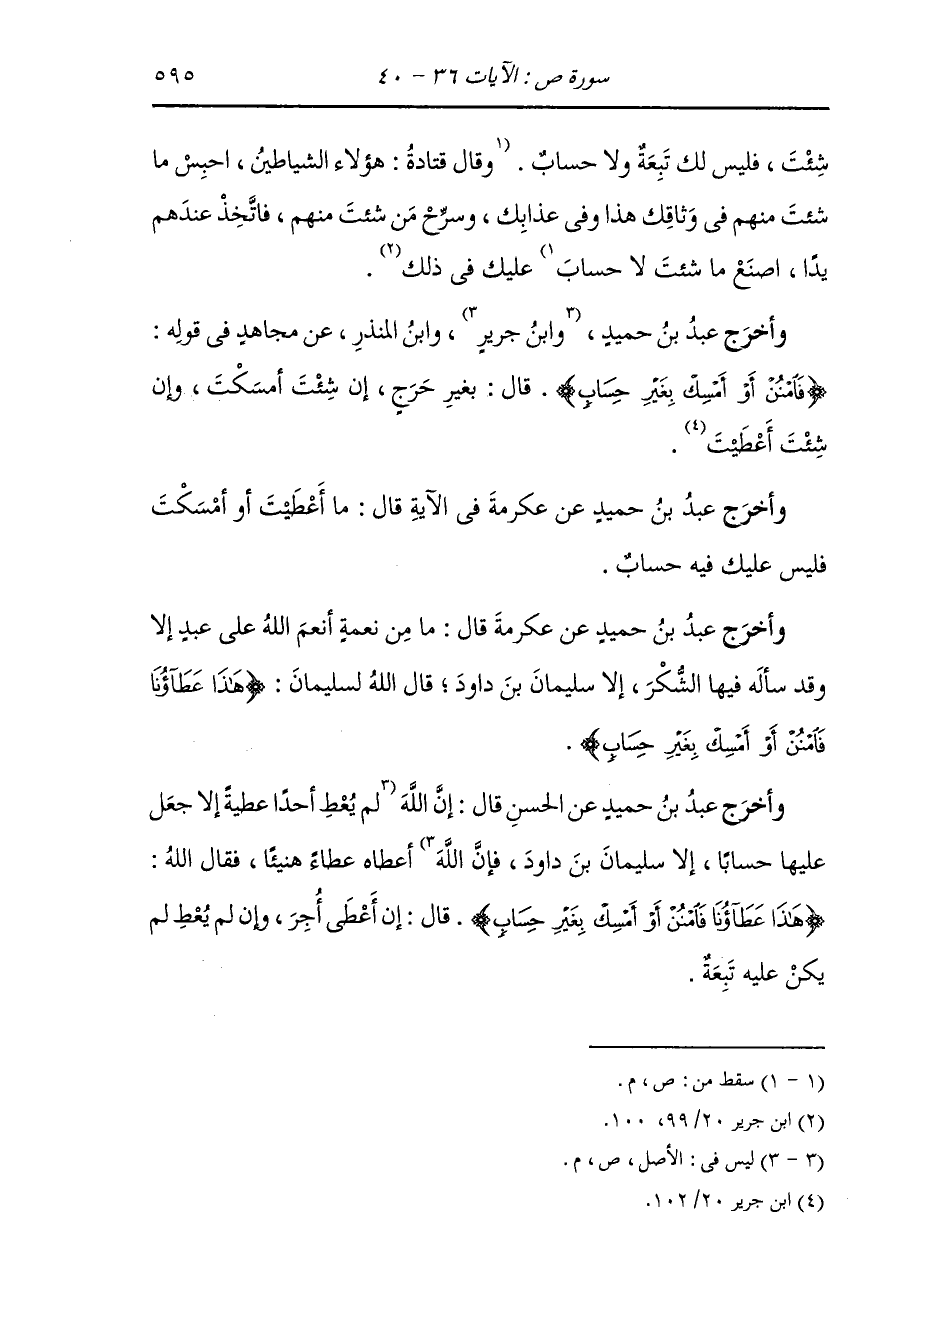 سورة ص : الآيات ٣٦ - ٤٠ ٥٩٥
شِئْتَ ، فليس لك تَبِعَةٌ ولا حسابٌ . (١وقال قتادةُ : هؤلاء الشياطينُ ، احبِسْ ما
شئتَ منهم فى وَثاقِك هذا وفى عذابِك ، وسرِّحْ مَن شئتَ منهم ، فاتَّخِذْ عندَهم
يدًا ، اصنَعْ ما شئتَ لا حسابَ١) عليك فى ذلك(٢) .
وأخرَج عبدُ بنُ حميدٍ ، (٣وابنُ جريرٍ٣) ، وابنُ المنذرِ ، عن مجاهدٍ فى قولِه :
﴿فَٱمْنُنْ أَوْ أَمْسِكْ بِغَيْرِ حِسَابٍ﴾ . قال : بغيرِ حَرَجٍ ، إن شِئْتَ أمسَكْتَ ، وإن
شِئْتَ أَعْطَيْتَ(٤) .
وأخرَج عبدُ بنُ حميدٍ عن عكرمةَ فى الآيةِ قال : ما أَعْطَيْتَ أو أمْسَكْتَ
فليس عليك فيه حسابٌ .
وأخرَج عبدُ بنُ حميدٍ عن عكرمةَ قال : ما مِن نعمةٍ أنعمَ اللهُ على عبدٍ إلا
وقد سأله فيها الشُّكْرَ ، إلا سليمانَ بنَ داودَ ؛ قال اللهُ لسليمانَ : ﴿هَـٰذَا عَطَآؤُنَا
فَٱمْنُنْ أَوْ أَمْسِكْ بِغَيْرِ حِسَابٍ﴾ .
وأخرَج عبدُ بنُ حميدٍ عن الحسنِ قال : إنَّ اللَّهَ (٣لم يُعْطِ أحدًا عطيةً إلا جعَل
عليها حسابًا ، إلا سليمانَ بنَ داودَ ، فإنَّ اللَّهَ٣) أعطاه عطاءً هنيئًا ، فقال اللهُ :
﴿هَـٰذَا عَطَآؤُنَا فَٱمْنُنْ أَوْ أَمْسِكْ بِغَيْرِ حِسَابٍ﴾ . قال : إن أَعْطَى أُجِرَ ، وإن لم يُعْطِ لم
يكنْ عليه تَبِعَةٌ .
(١ - ١) سقط من : ص ، م .
(٢) ابن جرير ٢٠/ ٩٩، ١٠٠.
(٣ - ٣) ليس فى : الأصل ، ص ، م .
(٤) ابن جرير ٢٠/ ١٠٢.